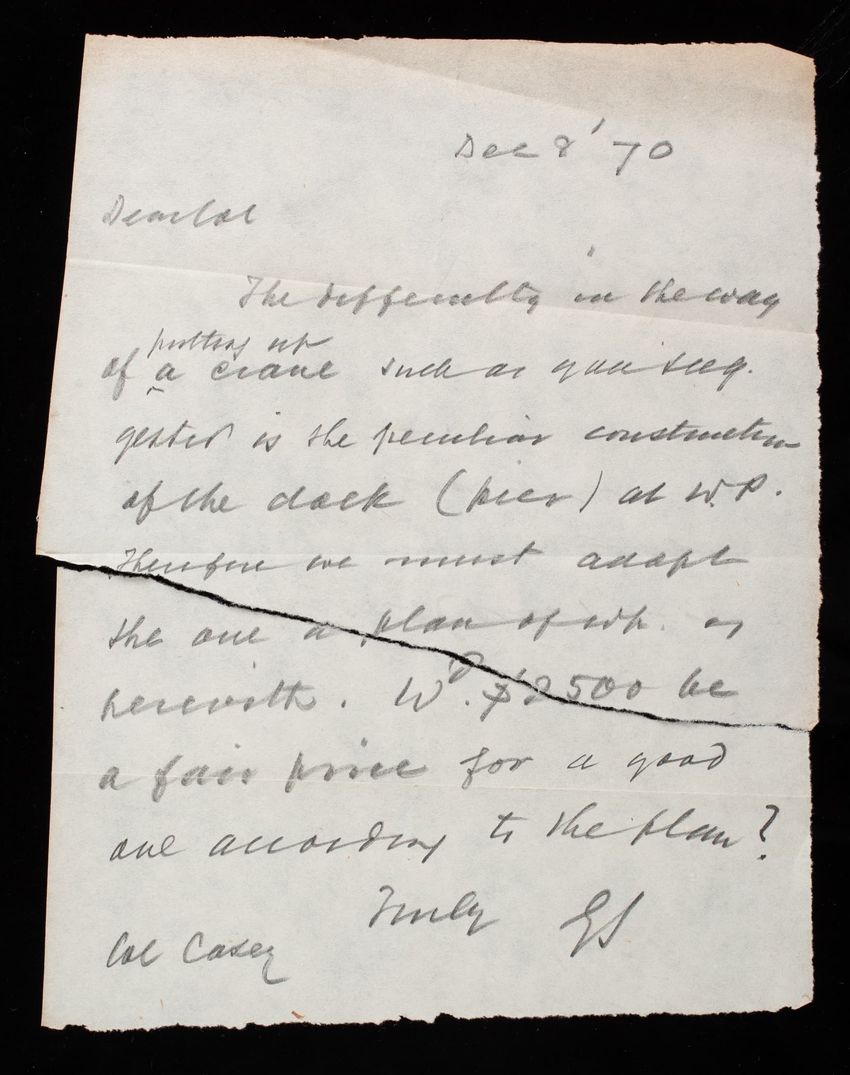 Dec 8' 70
Dear Col
The difficulty in the way
putting up
of a crane such as you sug-
gested is the peculiar construction
of the dock (pier) at W.P.
Therefore we must adapt
the one a plan of wh. is
herewith. Wd. $2500 be
a fair price for a good
one according to the plan?
Truly GS
Col Casey